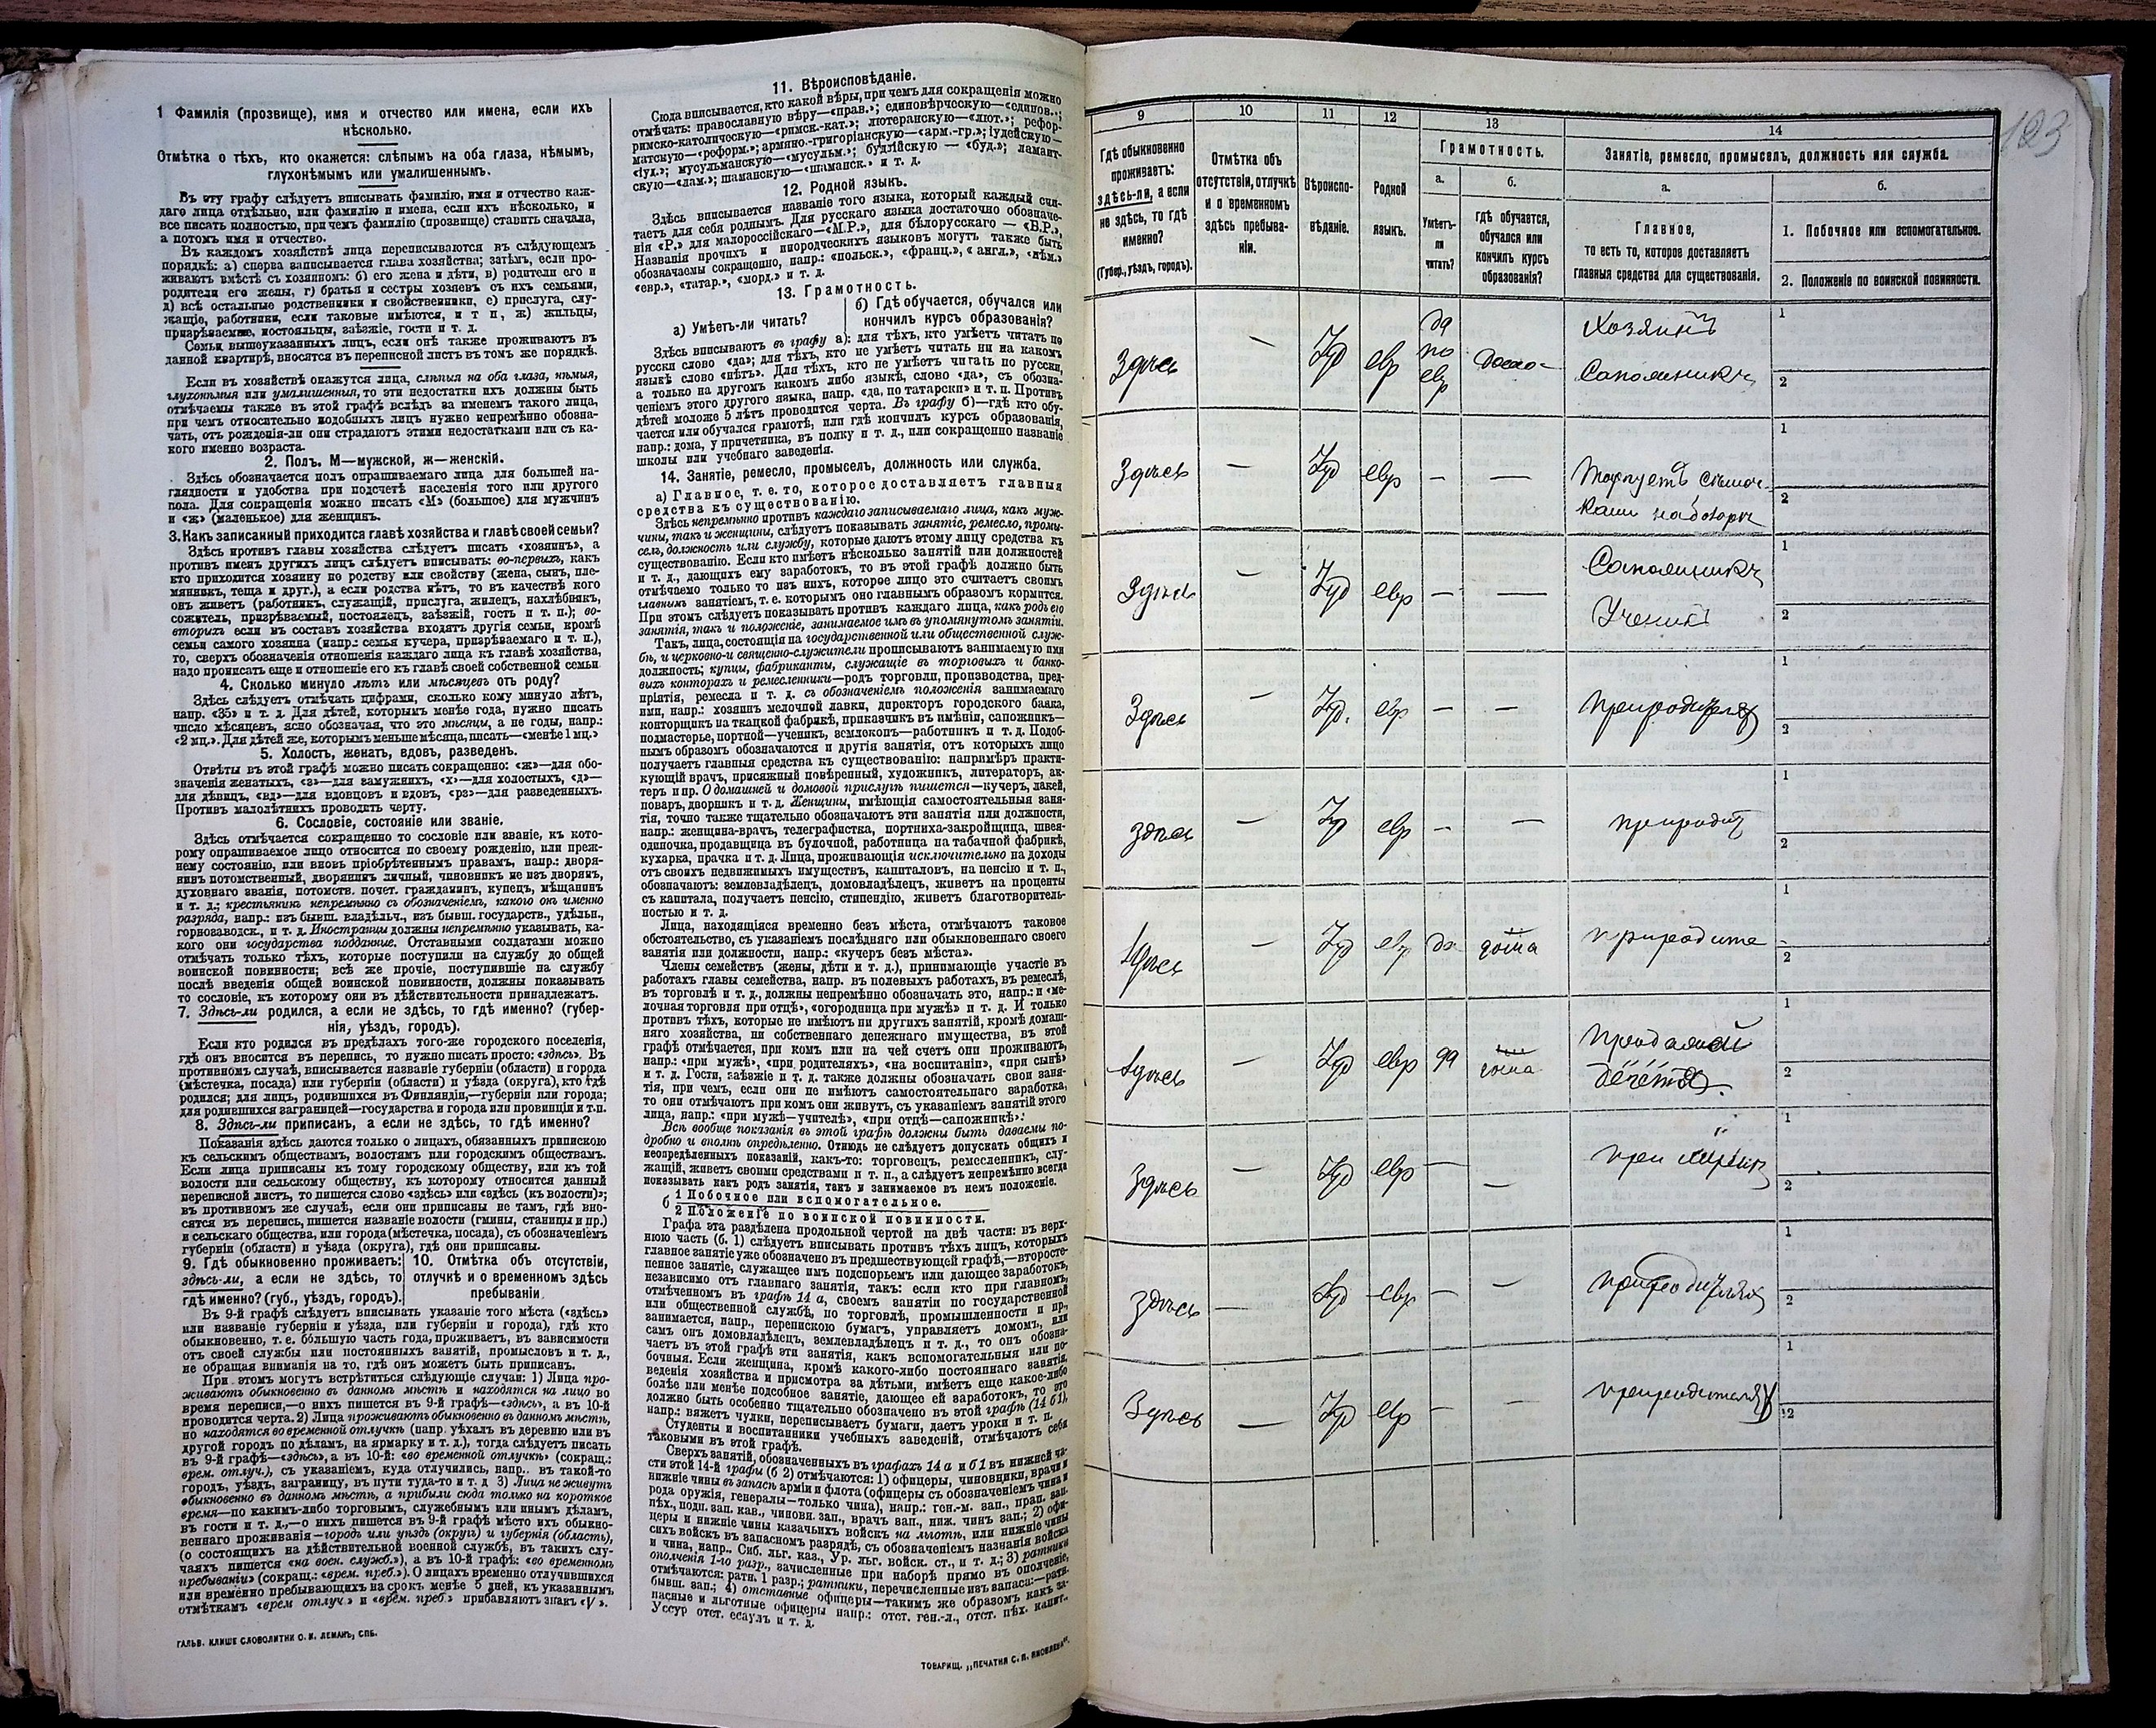 1 Фамилія (прозвище), имя и отчество или имена, если ихъ
нѣсколько.
Отмѣтка о тѣхъ, кто окажется: слѣпымъ на оба глаза, нѣмымъ,
глухонѣмымъ или умалишеннымъ.
Въ эту графу слѣдуетъ вписывать фамилію, имя и отчество каж-
даго лица отдѣльно, или фамилію и имена, если ихъ нѣсколько, и
все писать полностью, при чемъ фамилію (прозвище) ставить сначала,
а потомъ имя и отчество.
Въ каждомъ хозяйствѣ лица переписываются въ слѣдующемъ
порядкѣ: а) сперва записывается глава хозяйства; затѣмъ, если про-
живаютъ вмѣстѣ съ хозяиномъ: б) его жена и дѣти, в) родители его и
родители его жены, г) братья и сестры хозяевъ съ ихъ семьями,
д) всѣ остальные родственники и свойственники, е) прислуга, слу-
жащіе, работники, если таковые имѣются, и т п, ж) жильцы,
призрѣваемые, постояльцы, заѣзжіе, гости и т. д.
Семьи вышеуказанныхъ лицъ, если онѣ также проживаютъ въ
данной квартирѣ, вносятся въ переписной листъ въ томъ же порядкѣ.
Если въ хозяйствѣ окажутся лица, слѣпыя на оба глаза, нѣмыя,
глухонѣмыя или умалишенныя, то эти недостатки ихъ должны быть
отмѣчаемы также въ этой графѣ вслѣдъ за именемъ такого лица,
при чемъ относительно подобныхъ лицъ нужно непремѣнно обозна-
чать, отъ рожденія-ли они страдаютъ этими недостатками или съ ка-
кого именно возраста.
2. Полъ. М—мужской, ж—женскій.
Здѣсь обозначается полъ опрашиваемаго лица для большей на-
глядности и удобства при подсчетѣ населенія того или другого
пола. Для сокращенія можно писать «М» (большое) для мужчинъ
и «ж» (маленькое) для женщинъ.
3. Какъ записанный приходится главѣ хозяйства и главѣ своей семьи?
Здѣсь противъ главы хозяйства слѣдуетъ писать «хозяинъ», а
противъ именъ другихъ лицъ слѣдуетъ вписывать: во-первыхъ, какъ
кто приходится хозяину по родству или свойству (жена, сынъ, пле-
мянникъ, теща и друг.), а если родства нѣтъ, то въ качествѣ кого
онъ живетъ (работникъ, служащій, прислуга, жилецъ, нахлѣбникъ,
сожитель, призрѣваемый, постоялецъ, заѣзжій, гость и т. п.); во-
вторыхъ если въ составъ хозяйства входятъ другія семьи, кромѣ
семьи самого хозяина (напр.: семья кучера, призрѣваемаго и т. п.),
то, сверхъ обозначенія отношенія каждаго лица къ главѣ хозяйства,
надо прописать еще и отношеніе его къ главѣ своей собственной семьи
4. Сколько минуло лѣтъ или мѣсяцевъ отъ роду?
Здѣсь слѣдуетъ отмѣчать цифрами, сколько кому минуло лѣтъ,
напр. «35» и т. д. Для дѣтей, которымъ менѣе года, нужно писать
число мѣсяцевъ, ясно обозначая, что это мѣсяцы, а не годы, напр.:
«2 мц.». Для дѣтей же, которымъ меньше мѣсяца, писать—«менѣе 1 мц.»
5. Холостъ, женатъ, вдовъ, разведенъ.
Отвѣты въ этой графѣ можно писать сокращенно: «ж»—для обо-
значенія женатыхъ, «з»—для замужнихъ, «х»—для холостыхъ, «д»—
для дѣвицъ, «вд»—для вдовцовъ и вдовъ, «рз»—для разведенныхъ.
Противъ малолѣтнихъ проводить черту.
6. Сословіе, состояніе или званіе.
Здѣсь отмѣчается сокращенно то сословіе или званіе, къ кото-
рому опрашиваемое лицо относится по своему рожденію, или преж-
нему состоянію, или вновь пріобрѣтеннымъ правамъ, напр.: дворя-
нинъ потомственный, дворянинъ личный, чиновникъ не изъ дворянъ,
духовнаго званія, потомств. почет. гражданинъ, купецъ, мѣщанинъ
и т. д.; крестьянинъ непремѣнно съ обозначеніемъ, какого онъ именно
разряда, напр.: изъ бывш. владѣльч., изъ бывш. государств., удѣльн.,
горнозаводск., и т. д. Иностранцы должны непремѣнно указывать, ка-
кого они государства подданные. Отставными солдатами можно
отмѣчать только тѣхъ, которые поступили на службу до общей
воинской повинности; всѣ же прочіе, поступившіе на службу
послѣ введенія общей воинской повинности, должны показывать
то сословіе, къ которому они въ дѣйствительности принадлежатъ.
7. Здѣсь-ли родился, а если не здѣсь, то гдѣ именно? (губер-
нія, уѣздъ, городъ).
Если кто родился въ предѣлахъ того-же городского поселенія,
гдѣ онъ вносится въ перепись, то нужно писать просто: «здѣсь». Въ
противномъ случаѣ, вписывается названіе губерніи (области) и города
(мѣстечка, посада) или губерніи (области) и уѣзда (округа), кто гдѣ
родился; для лицъ, родившихся въ Финляндіи,—губернія или города;
для родившихся заграницей—государства и города или провинціи и т.п.
8. Здѣсь-ли приписанъ, а если не здѣсь, то гдѣ именно?
Показанія здѣсь даются только о лицахъ, обязанныхъ припискою
къ сельскимъ обществамъ, волостямъ или городскимъ обществамъ.
Если лица приписаны къ тому городскому обществу, или къ той
волости или сельскому обществу, къ которому относится данный
переписной листъ, то пишется слово «здѣсь» или «здѣсь (къ волости)»;
въ противномъ же случаѣ, если они приписаны не тамъ, гдѣ вно-
сятся въ перепись, пишется названіе волости (гмины, станицы и пр.)
и сельскаго общества, или города (мѣстечка, посада), съ обозначеніемъ
губерніи (области) и уѣзда (округа), гдѣ они приписаны.
9. Гдѣ обыкновенно проживаетъ:
здѣсь-ли, а если не здѣсь, то
гдѣ именно? (губ., уѣздъ, городъ).
10. Отмѣтка объ отсутствіи,
отлучкѣ и о временномъ здѣсь
пребываніи.
Въ 9-й графѣ слѣдуетъ вписывать указаніе того мѣста («здѣсь»
или названіе губерніи и уѣзда, или губерніи и города), гдѣ кто
обыкновенно, т. е. бо́льшую часть года, проживаетъ, въ зависимости
отъ своей службы или постоянныхъ занятій, промысловъ и т. д.,
не обращая вниманія на то, гдѣ онъ можетъ быть приписанъ.
При этомъ могутъ встрѣтиться слѣдующіе случаи: 1) Лица про-
живаютъ обыкновенно въ данномъ мѣстѣ и находятся на лицо во
время переписи,—о нихъ пишется въ 9-й графѣ—«здѣсь», а въ 10-й
проводится черта. 2) Лица проживаютъ обыкновенно въ данномъ мѣстѣ,
но находятся во временной отлучкѣ (напр. уѣхалъ въ деревню или въ
другой городъ по дѣламъ, на ярмарку и т. д.), тогда слѣдуетъ писать
въ 9-й графѣ—«здѣсь», а въ 10-й: «во временной отлучкѣ» (сокращ.:
врем. отлуч.), съ указаніемъ, куда отлучились, напр., въ такой-то
городъ, уѣздъ, заграницу, въ пути туда-то и т. д 3) Лица не живутъ
обыкновенно въ данномъ мѣстѣ, а прибыли сюда только на короткое
время—по какимъ-либо торговымъ, служебнымъ или инымъ дѣламъ,
въ гости и т. д.,—о нихъ пишется въ 9-й графѣ мѣсто ихъ обыкно-
веннаго проживанія—городъ или уѣздъ (округъ) и губернія (область),
(о состоящихъ на дѣйствительной военной службѣ, въ такихъ слу-
чаяхъ пишется «на воен. служб.»), а въ 10-й графѣ: «во временномъ
пребываніи» (сокращ.: «врем. преб.»). О лицахъ временно отлучившихся
или временно пребывающихъ на срокъ менѣе 5 дней, къ указаннымъ
отмѣткамъ «врем отлуч.» и «врем. преб.» прибавляютъ знакъ «V».
ГАЛЬВ. КЛИШЕ СЛОВОЛИТНИ О. И. ЛЕМАНЪ, СПБ.
11. Вѣроисповѣданіе.
Сюда вписывается, кто какой вѣры, при чемъ для сокращенія можно
отмѣчать: православную вѣру—«прав.»; единовѣрческую—«единов.»;
римско-католическую—«римск.-кат.»; лютеранскую—«лют.»; рефор-
матскую—«реформ.»; армяно-григоріанскую—«арм.-гр.»; іудейскую—
«іуд.»; мусульманскую—«мусульм.»; буддійскую — «буд.»; ламаит-
скую—«лам.»; шаманскую—«шаманск.» и т. д.
12. Родной языкъ.
Здѣсь вписывается названіе того языка, который каждый счи-
таетъ для себя роднымъ. Для русскаго языка достаточно обозначе-
нія «Р.» для малороссійскаго—«М.Р.», для бѣлорусскаго — «Б.Р.»,
Названія прочихъ и инородческихъ языковъ могутъ также быть
обозначаемы сокращенно, напр.: «польск.», «франц.», « англ.», «нѣм.»
«евр.», «татар.», «морд.» и т. д.
13. Грамотность.
а) Умѣетъ-ли читать?
б) Гдѣ обучается, обучался или
кончилъ курсъ образованія?
Здѣсь вписываютъ въ графу а): для тѣхъ, кто умѣетъ читать по
русски слово «да»; для тѣхъ, кто не умѣетъ читать ни на какомъ
языкѣ слово «нѣтъ». Для тѣхъ, кто не умѣетъ читать по русски,
а только на другомъ какомъ либо языкѣ, слово «да», съ обозна-
ченіемъ этого другого языка, напр. «да, по татарски» и т. п. Противъ
дѣтей моложе 5 лѣтъ проводится черта. Въ графу б)—гдѣ кто обу-
чается или обучался грамотѣ, или гдѣ кончилъ курсъ образованія,
напр.: дома, у причетника, въ полку и т. д., или сокращенно названіе
школы или учебнаго заведенія.
14. Занятіе, ремесло, промыселъ, должность или служба.
а) Главное, т. е. то, которое доставляетъ главныя
средства къ существованію.
Здѣсь непремѣнно противъ каждаго записываемаго лица, какъ муж-
чины, такъ и женщины, слѣдуетъ показывать занятіе, ремесло, промы-
селъ, должность или службу, которые даютъ этому лицу средства къ
существованію. Если кто имѣетъ нѣсколько занятій или должностей
и т. д., дающихъ ему заработокъ, то въ этой графѣ должно быть
отмѣчаемо только то изъ нихъ, которое лицо это считаетъ своимъ
главнымъ занятіемъ, т. е. которымъ оно главнымъ образомъ кормится.
При этомъ слѣдуетъ показывать противъ каждаго лица, какъ родъ его
занятія, такъ и положеніе, занимаемое имъ въ упомянутомъ занятіи.
Такъ, лица, состоящія на государственной или общественной служ-
бѣ, и церковно-и священно-служители прописываютъ занимаемую ими
должность; купцы, фабриканты, служащіе въ торговыхъ и банко-
выхъ конторахъ и ремесленники—родъ торговли, производства, пред-
пріятія, ремесла и т. д. съ обозначеніемъ положенія занимаемаго
ими, напр.: хозяинъ мелочной лавки, директоръ городского банка,
конторщикъ на ткацкой фабрикѣ, приказчикъ въ имѣніи, сапожникъ—
подмастерье, портной—ученикъ, землекопъ—работникъ и т. д. Подоб-
нымъ образомъ обозначаются и другія занятія, отъ которыхъ лицо
получаетъ главныя средства къ существованію: напримѣръ практи-
кующій врачъ, присяжный повѣренный, художникъ, литераторъ, ак-
теръ и пр. О домашней и домовой прислугѣ пишется—кучеръ, лакей,
поваръ, дворникъ и т. д. Женщины, имѣющія самостоятельныя заня-
тія, точно также тщательно обозначаютъ эти занятія или должности,
напр.: женщина-врачъ, телеграфистка, портниха-закройщица, швея-
одиночка, продавщица въ булочной, работница на табачной фабрикѣ,
кухарка, прачка и т. д. Лица, проживающія исключительно на доходы
отъ своихъ недвижимыхъ имуществъ, капиталовъ, на пенсію и т. п.,
обозначаютъ: землевладѣлецъ, домовладѣлецъ, живетъ на проценты
съ капитала, получаетъ пенсію, стипендію, живетъ благотворитель-
ностью и т. д.
Лица, находящіяся временно безъ мѣста, отмѣчаютъ таковое
обстоятельство, съ указаніемъ послѣдняго или обыкновеннаго своего
занятія или должности, напр.: «кучеръ безъ мѣста».
Члены семействъ (жены, дѣти и т. д.), принимающіе участіе въ
работахъ главы семейства, напр. въ полевыхъ работахъ, въ ремеслѣ,
въ торговлѣ и т. д., должны непремѣнно обозначать это, напр.: и «ме-
лочная торговля при отцѣ», «огородница при мужѣ» и т. д. И только
противъ тѣхъ, которые не имѣютъ ни другихъ занятій, кромѣ домаш-
няго хозяйства, ни собственнаго денежнаго имущества, въ этой
графѣ отмѣчается, при комъ или на чей счетъ они проживаютъ,
напр.: «при мужѣ», «при родителяхъ», «на воспитаніи», «при сынѣ»
и т. д. Гости, заѣзжіе и т. д. также должны обозначать свои заня-
тія, при чемъ, если они не имѣютъ самостоятельнаго заработка,
то они отмѣчаютъ при комъ они живутъ, съ указаніемъ занятій этого
лица, напр.: «при мужѣ—учителѣ», «при отцѣ—сапожникѣ».
Всѣ вообще показанія въ этой графѣ должны быть даваемы по-
дробно и вполнѣ опредѣленно. Отнюдь не слѣдуетъ допускать общихъ и
неопредѣленныхъ показаній, какъ-то: торговецъ, ремесленникъ, слу-
жащій, живетъ своими средствами и т. п., а слѣдуетъ непремѣнно всегда
показывать какъ родъ занятія, такъ и занимаемое въ немъ положеніе.
б
1 Побочное или вспомогательное.
2 Положеніе по воинской повинности.
Графа эта раздѣлена продольной чертой на двѣ части: въ верх-
нюю часть (б. 1) слѣдуетъ вписывать противъ тѣхъ лицъ, которыхъ
главное занятіе уже обозначено въ предшествующей графѣ,—второсте-
пенное занятіе, служащее имъ подспорьемъ или дающее заработокъ,
независимо отъ главнаго занятія, такъ: если кто при главномъ,
отмѣченномъ въ графѣ 14 а, своемъ занятіи по государственной
или общественной службѣ, по торговлѣ, промышленности и пр.,
занимается, напр., перепискою бумагъ, управляетъ домомъ, или
самъ онъ домовладѣлецъ, землевладѣлецъ и т. д., то онъ обозна-
чаетъ въ этой графѣ эти занятія, какъ вспомогательныя или по-
бочныя. Если женщина, кромѣ какого-либо постояннаго занятія,
веденія хозяйства и присмотра за дѣтьми, имѣетъ еще какое-либо
болѣе или менѣе подсобное занятіе, дающее ей заработокъ, то это
должно быть особенно тщательно обозначено въ этой графѣ (14 б 1),
напр.: вяжетъ чулки, переписываетъ бумаги, даетъ уроки и т. п.
Студенты и воспитанники учебныхъ заведеній, отмѣчаютъ себя
таковыми въ этой графѣ.
Сверхъ занятій, обозначенныхъ въ графахъ 14 а и б 1 въ нижней ча-
сти этой 14-й графы (б 2) отмѣчаются: 1) офицеры, чиновники, врачи и
нижніе чины въ запасѣ арміи и флота (офицеры съ обозначеніемъ чина и
рода оружія, генералы—только чина), напр.: ген.-м. зап., прап. зап.
пѣх., подп. зап. кав., чиновн. зап., врачъ зап., ниж. чинъ зап.; 2) офи-
церы и нижніе чины казачьихъ войскъ на льготѣ, или нижніе чины
сихъ войскъ въ запасномъ разрядѣ, съ обозначеніемъ названія войска
и чина, напр. Сиб. льг. каз., Ур. льг. войск. ст., и т. д.; 3) ратники
ополченія 1-го разр., зачисленные при наборѣ прямо въ ополченіе,
отмѣчаются: ратн. 1 разр.; ратники, перечисленные изъ запаса:—ратн.
бывш. зап.; 4) отставные офицеры—такимъ же образомъ какъ за-
пасные и льготные офицеры напр.: отст. ген.-л., отст. пѣх. капит.,
Уссур отст. есаулъ и т. д.
ТОВАРИЩ. „ПЕЧАТНЯ С. П. ЯКОВЛЕВА“.
123
9 10 11 12 13 14
Гдѣ обыкновенно
проживаетъ:
здѣсь-ли, а если
не здѣсь, то гдѣ
именно?
(Губер., уѣздъ, городъ).
Отмѣтка объ
отсутствіи, отлучкѣ
и о временномъ
здѣсь пребыва-
ніи.
Вѣроиспо-
вѣданіе.
Родной
языкъ.
Грамотность.
а.
Умѣетъ-
ли
читать?
б.
гдѣ обучается,
обучался или
кончилъ курсъ
образованія?
Занятіе, ремесло, промыселъ, должность или служба.
а.
Главное,
то есть то, которое доставляетъ
главныя средства для существованія.
б.
1. Побочное или вспомогательное.
2. Положеніе по воинской повинности.
Здѣсь — Іуд евр да по евр
Хозяинъ
Сапожникъ
1
2
Здѣсь — Іуд евр — —
Торгуетъ
1
2
Здѣсь — Іуд евр — —
Сапожникъ
Ученикъ
1
2
Здѣсь — Іуд. евр — — при родителях
1
2
здѣсь — Іуд евр — —
1
2
Здѣсь — Іуд евр да дома
1
2
Здѣсь — Іуд евр да дома
1
2
Здѣсь — Іуд евр — —
1
2
здѣсь — Іуд евр — — при родителях
1
2
Здѣсь — Іуд евр — — при родителях
1
2